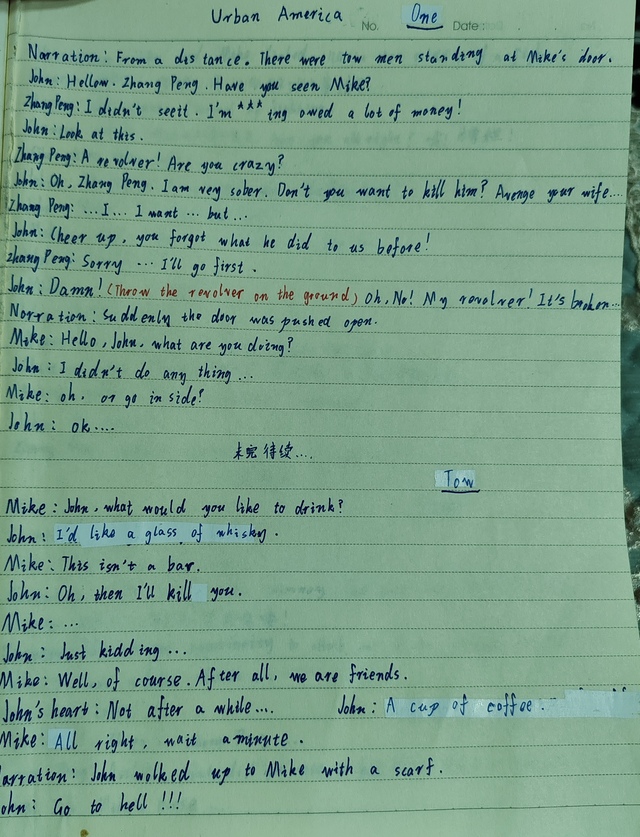 Urban America No. One Date:
Narration: From a distance. There were tow men standing at Mike's door.
John: Hellow. Zhang Peng. Have you seen Mike?
Zhang Peng: I didn't seeit. I'm *** ing owed a lot of money!
John: Look at this.
Zhang Peng: A revolver! Are you crazy?
John: Oh, Zhang Peng. I am very sober. Don't you want to kill him? Avenge your wife...
Zhang Peng: ... I... I want ... but ...
John: Cheer up, you forgot what he did to us before!
Zhang Peng: Sorry ... I'll go first.
John: Damn! (Throw the revolver on the ground) Oh, No! My revolver! It's broken...
Narration: Suddenly the door was pushed open.
Mike: Hello, John, what are you doing?
John: I didn't do any thing ...
Mike: oh. or go in side?
John: ok....
未完待续....
Tow
Mike: John, what would you like to drink?
John: I'd like a glass of whisky.
Mike: This isn't a bar.
John: Oh, then I'll kill you.
Mike: ...
John: Just kidding ...
Mike: Well, of course. After all, we are friends.
John's heart: Not after a while.... John: A cup of coffee.
Mike: All right, wait aminute.
arration: John walked up to Mike with a scarf.
ohn: Go to hell !!!